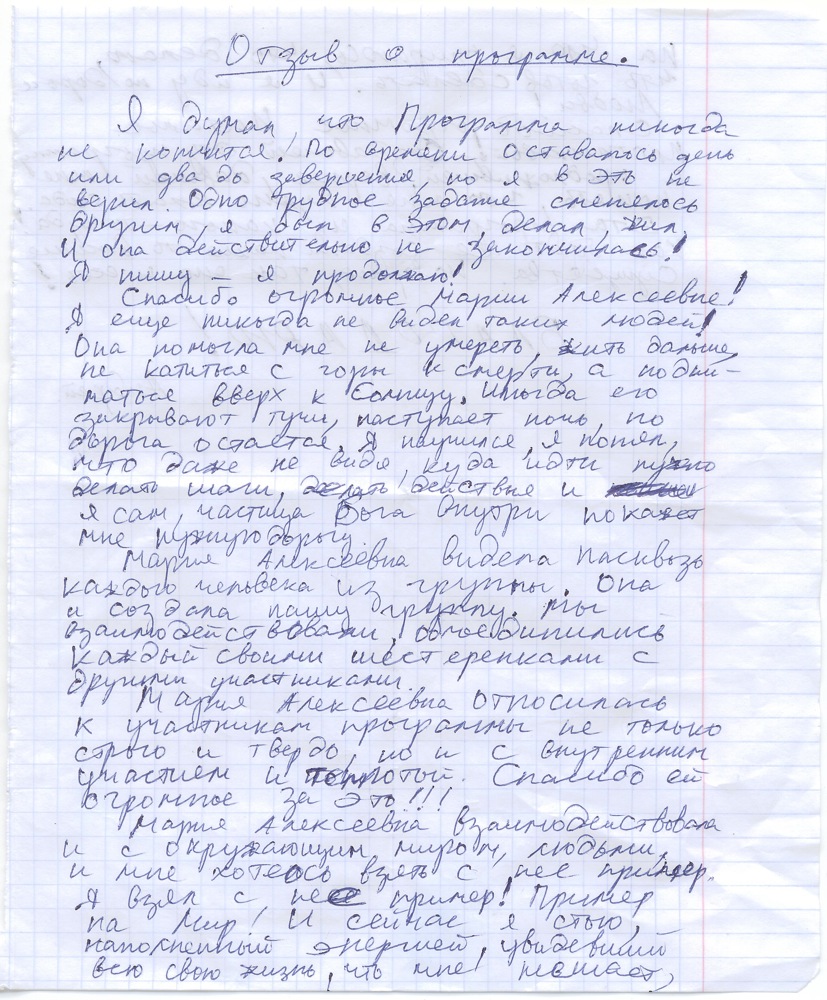 Отзыв о программе.
Я думал, что Программа никогда
не кончится! По времени оставалось день
или два до завершения, но я в это не
верил. Одно трудное задание сменялось
другим, я был в этом, делал, жил.
И она действительно не закончилась!
Я пишу – я продолжаю!
Спасибо огромное Марии Алексеевне!
Я еще никогда не видел таких людей!
Она помогла мне не умереть, жить дальше,
не катиться с горы к смерти, а подни-
маться вверх к Солнцу. Иногда его
закрывают тучи, наступает ночь, но
дорога остается. Я научился, я понял,
что даже не видя, куда идти нужно
делать шаги, делать действия и
я сам, частица Бога внутри покажет
мне нужную дорогу.
Мария Алексеевна видела насквозь
каждого человека из группы. Она
и создала нашу группу. Мы
взаимодействовали, объединились
каждый своими шестеренками с
другими участниками.
Мария Алексеевна относилась
к участникам программы не только
строго и твердо, но и с внутренним
участием и теплотой. Спасибо ей
огромное за это!!!
Мария Алексеевна взаимодействовала
и с окружающим миром, людьми,
и мне хотелось взять с нее пример.
Я взял с нее пример! Пример
на Мир! И сейчас я стою,
наполненный энергией, увидевший
всю свою жизнь, что мне мешает,